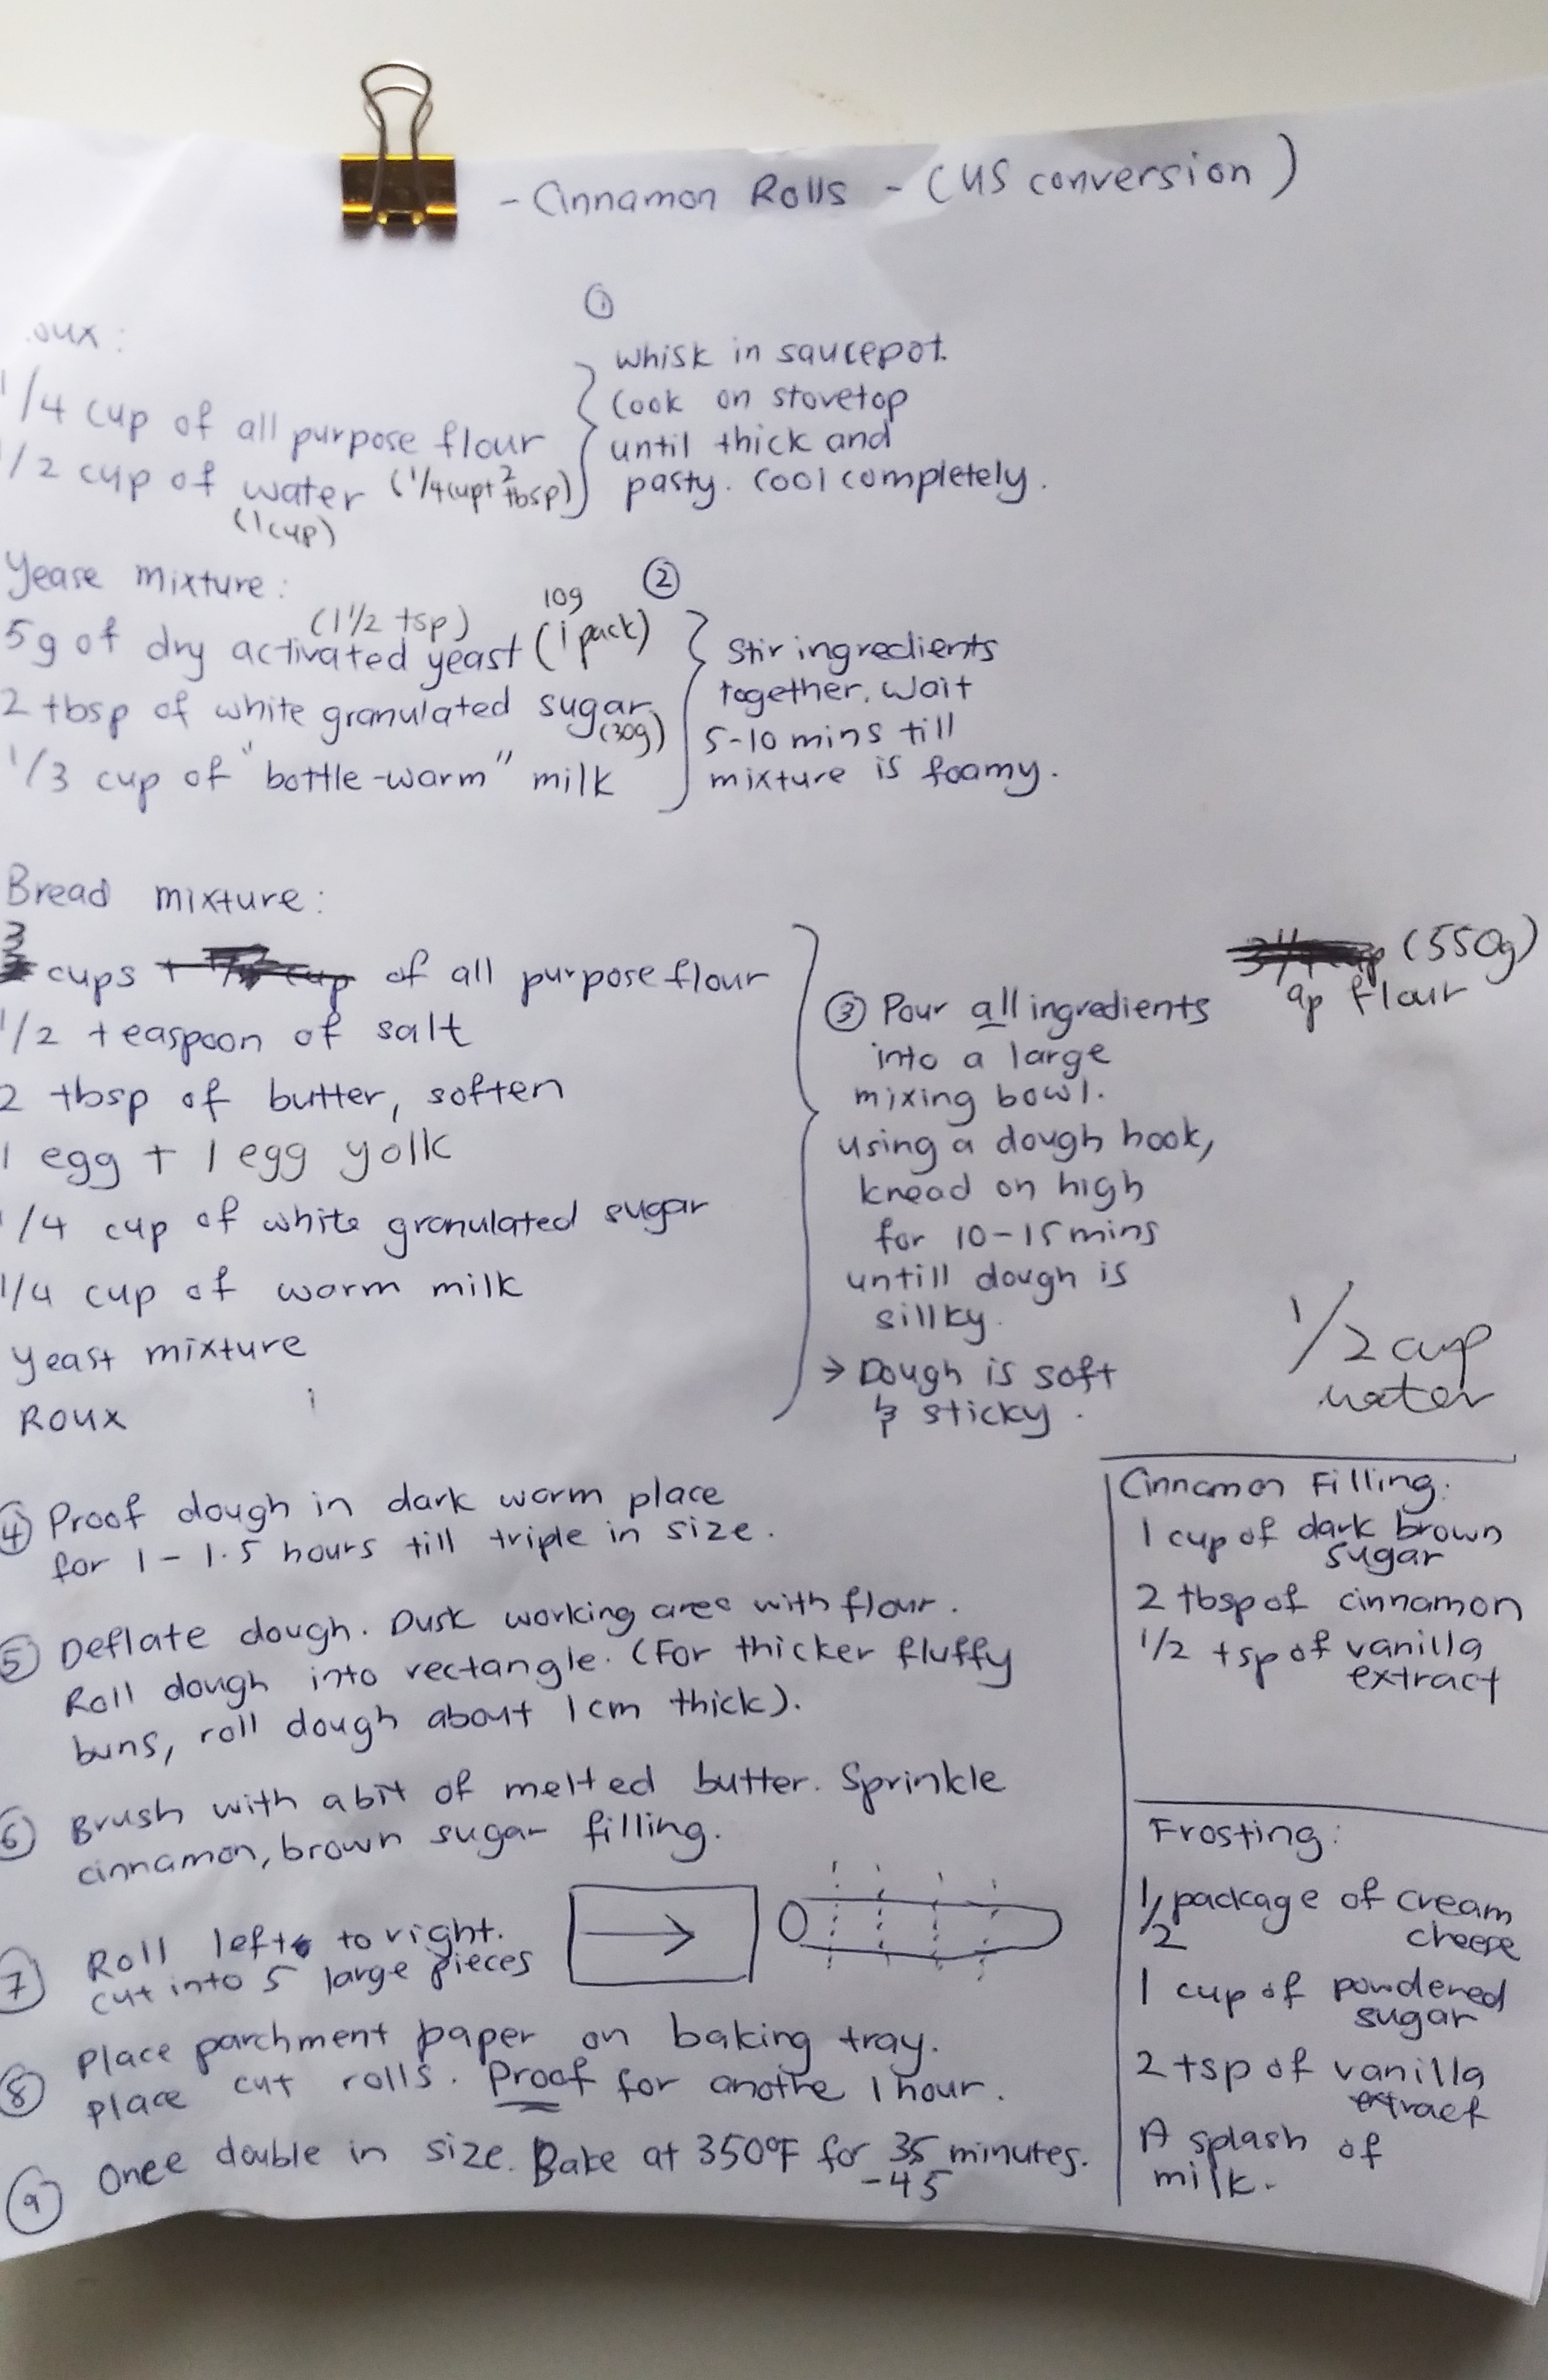 - Cinnamon Rolls - (US conversion)
oux:
1/4 cup of all purpose flour
1/2 cup of water (1/4cup+ 2 tbsp)
(1cup)
①
whisk in saucepot.
Cook on stovetop
until thick and
pasty. Cool completely.
Yease mixture:
5g of dry activated yeast (1 pack)
(1 1/2 tsp)
10g
2 tbsp of white granulated sugar
(30g)
1/3 cup of "bottle-warm" milk
②
Stir ingredients
together. Wait
5-10 mins till
mixture is foamy.
Bread mixture:
3 cups of all purpose flour
1/2 teaspoon of salt
2 tbsp of butter, soften
1 egg + 1 egg yolk
1/4 cup of white granulated sugar
1/4 cup of warm milk
yeast mixture
Roux
③ Pour all ingredients
into a large
mixing bowl.
using a dough hook,
knead on high
for 10-15 mins
untill dough is
sillky.
→ Dough is soft
& sticky.
(550g)
ap flour
1/2 cup
water
④ Proof dough in dark warm place
for 1-1.5 hours till triple in size.
⑤ Deflate dough. Dusk working area with flour.
Roll dough into rectangle. (For thicker fluffy
buns, roll dough about 1cm thick).
⑥ Brush with abit of melted butter. Sprinkle
cinnamon, brown sugar filling.
⑦ Roll left to right.
cut into 5 large pieces
⑧ Place parchment paper on baking tray.
place cut rolls. Proof for anothe 1 hour.
⑨ Once double in size. Bake at 350°F for 35 minutes.
-45
Cinnamon Filling:
1 cup of dark brown
sugar
2 tbsp of cinnamon
1/2 tsp of vanilla
extract
Frosting:
1/2 package of cream
cheese
1 cup of powdered
sugar
2 tsp of vanilla
extract
A splash of
milk.